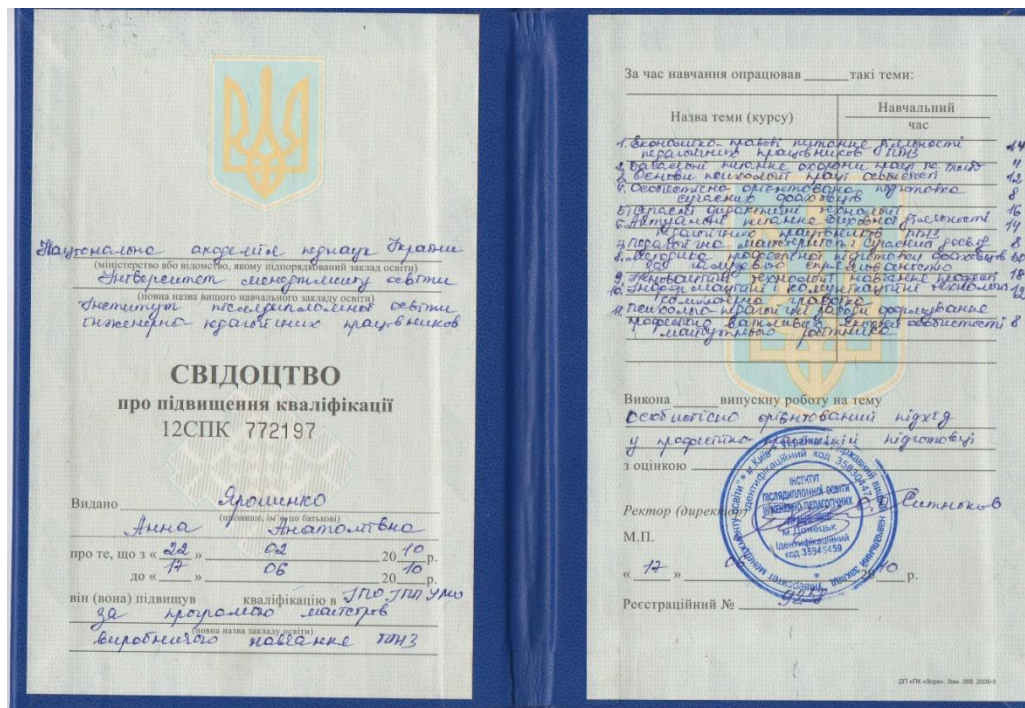 Національна академія педнаук України
(міністерство або відомство, якому підпорядкований заклад освіти)
Університет менеджменту освіти
(повна назва вищого навчального закладу освіти)
Інститут післядипломної освіти
інженерно педагогічних працівників
СВІДОЦТВО
про підвищення кваліфікації
12СПК 772197
Видано Ярошенко
(прізвище, ім'я, по батькові)
Анна Анатоліївна
про те, що з « 22 » 02 20 10 р.
до « 17 » 06 20 10 р.
він (вона) підвищув кваліфікацію в ІПО ІПП УМО
за програмою майстрів
(повна назва закладу освіти)
виробничого навчання ПТНЗ
За час навчання опрацював такі теми:
Назва теми (курсу) Навчальний
час
1. Економіко-правові питання діяльності 14
педагогічних працівників ПТНЗ
2. питання охорони праці та 4
3. Основи психології праці особистості 12
4. Особистісно орієнтована підготовка
сучасних фахівців 8
5. Сучасні дидактичні технології 16
6. Актуальні питання виховної діяльності 14
педагогічних працівників ПТНЗ
7. Педагогічна майстерність: сучасний досвід 8
8. Методика професійної підготовки фахівців
за галузевою спрямованістю
9. Інноваційні технології навчання 18
10. Інформаційні і комунікаційні технології 12
комп'ютерна графіка
11. Психолого-педагогічні засоби формування
професійно важливих якостей особистості 8
майбутнього робітника
Викона випускну роботу на тему
Особистісно орієнтований підхід
у професійно-практичній підготовці
з оцінкою
Ректор (директор) Ситніков
М.П.
« 17 » 06 20 10 р.
Реєстраційний №
ІНСТИТУТ
ПІСЛЯДИПЛОМНОЇ ОСВІТИ
ІНЖЕНЕРНО-ПЕДАГОГІЧНИХ
ПРАЦІВНИКІВ
м.Донецьк
Ідентифікаційний
код 35945459